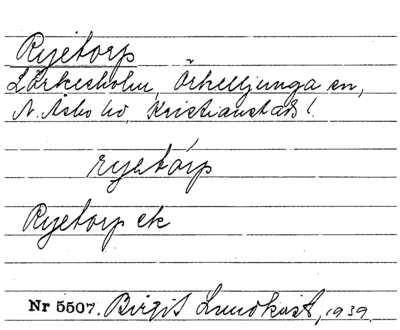 Ryetorp
Lärkesholm, Örkelljunga sn,
N. Åsbo hd, Kristianstads l.
ryetórp
Ryetorp ek
Nr 5507. Birgit Lundkvist, 1939.